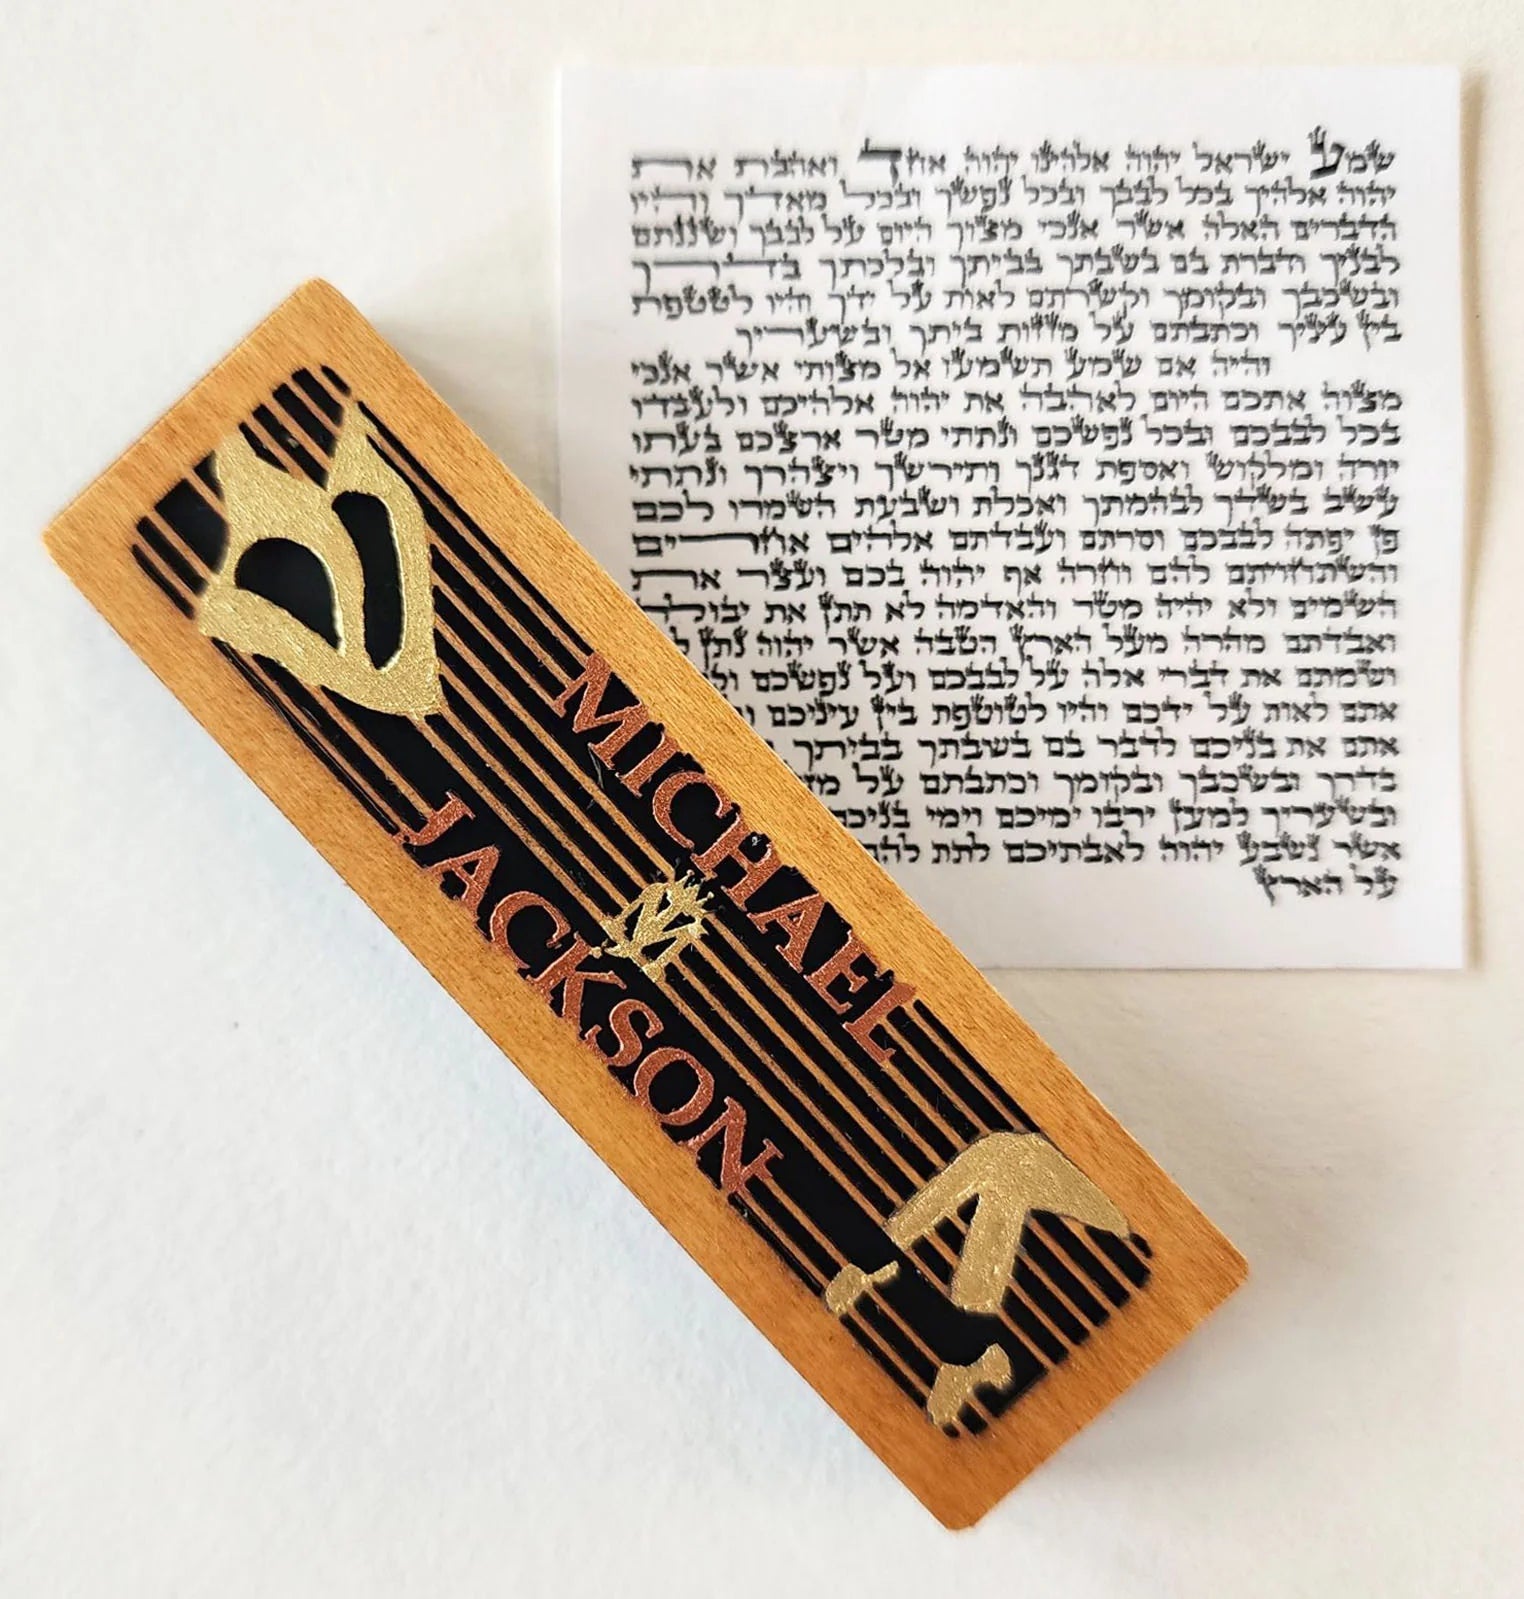 שמע ישראל יהוה אלהינו יהוה אחד ואהבת את
יהוה אלהיך בכל לבבך ובכל נפשך ובכל מאדך והיו
הדברים האלה אשר אנכי מצוך היום על לבבך ושננתם
לבניך ודברת בם בשבתך בביתך ובלכתך בדרך
ובשכבך ובקומך וקשרתם לאות על ידך והיו לטטפת
בין עיניך וכתבתם על מזזות ביתך ובשעריך
והיה אם שמע תשמעו אל מצותי אשר אנכי
מצוה אתכם היום לאהבה את יהוה אלהיכם ולעבדו
בכל לבבכם ובכל נפשכם ונתתי מטר ארצכם בעתו
יורה ומלקוש ואספת דגנך ותירשך ויצהרך ונתתי
עשב בשדך לבהמתך ואכלת ושבעת השמרו לכם
פן יפתה לבבכם וסרתם ועבדתם אלהים אחרים
והשתחויתם להם וחרה אף יהוה בכם ועצר את
השמים ולא יהיה מטר והאדמה לא תתן את יבולה
ואבדתם מהרה מעל הארץ הטבה אשר יהוה נתן
ושמתם את דברי אלה על לבבכם ועל נפשכם
אתם לאות על ידכם והיו לטוטפת בין עיניכם
אתם את בניכם לדבר בם בשבתך בביתך
בדרך ובשכבך ובקומך וכתבתם על
ובשעריך למען ירבו ימיכם וימי בניכם
אשר נשבע יהוה לאבתיכם לתת
על הארץ
ש
MICHAEL
JACKSON